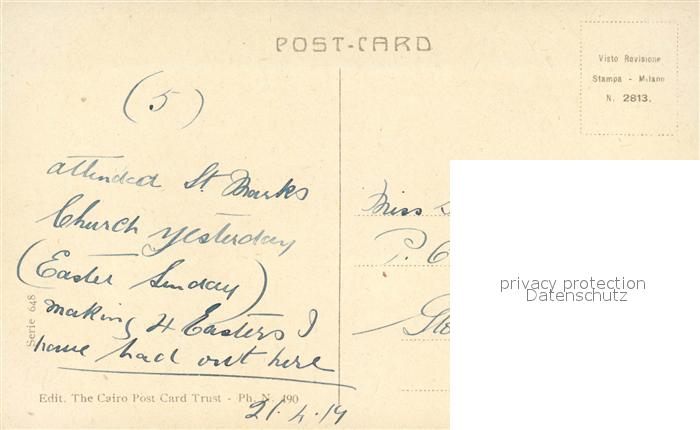 POST-CARD
Visto Revisione
Stampa - Milano
N. 2813.
(5)
attended St. Marks
Church yesterday
(Easter Sunday)
making 4 Easters I
have had out here
21.4.19
Miss
P.
privacy protection
Datenschutz
Serie 648
Edit. The Cairo Post Card Trust - Ph. N. 490